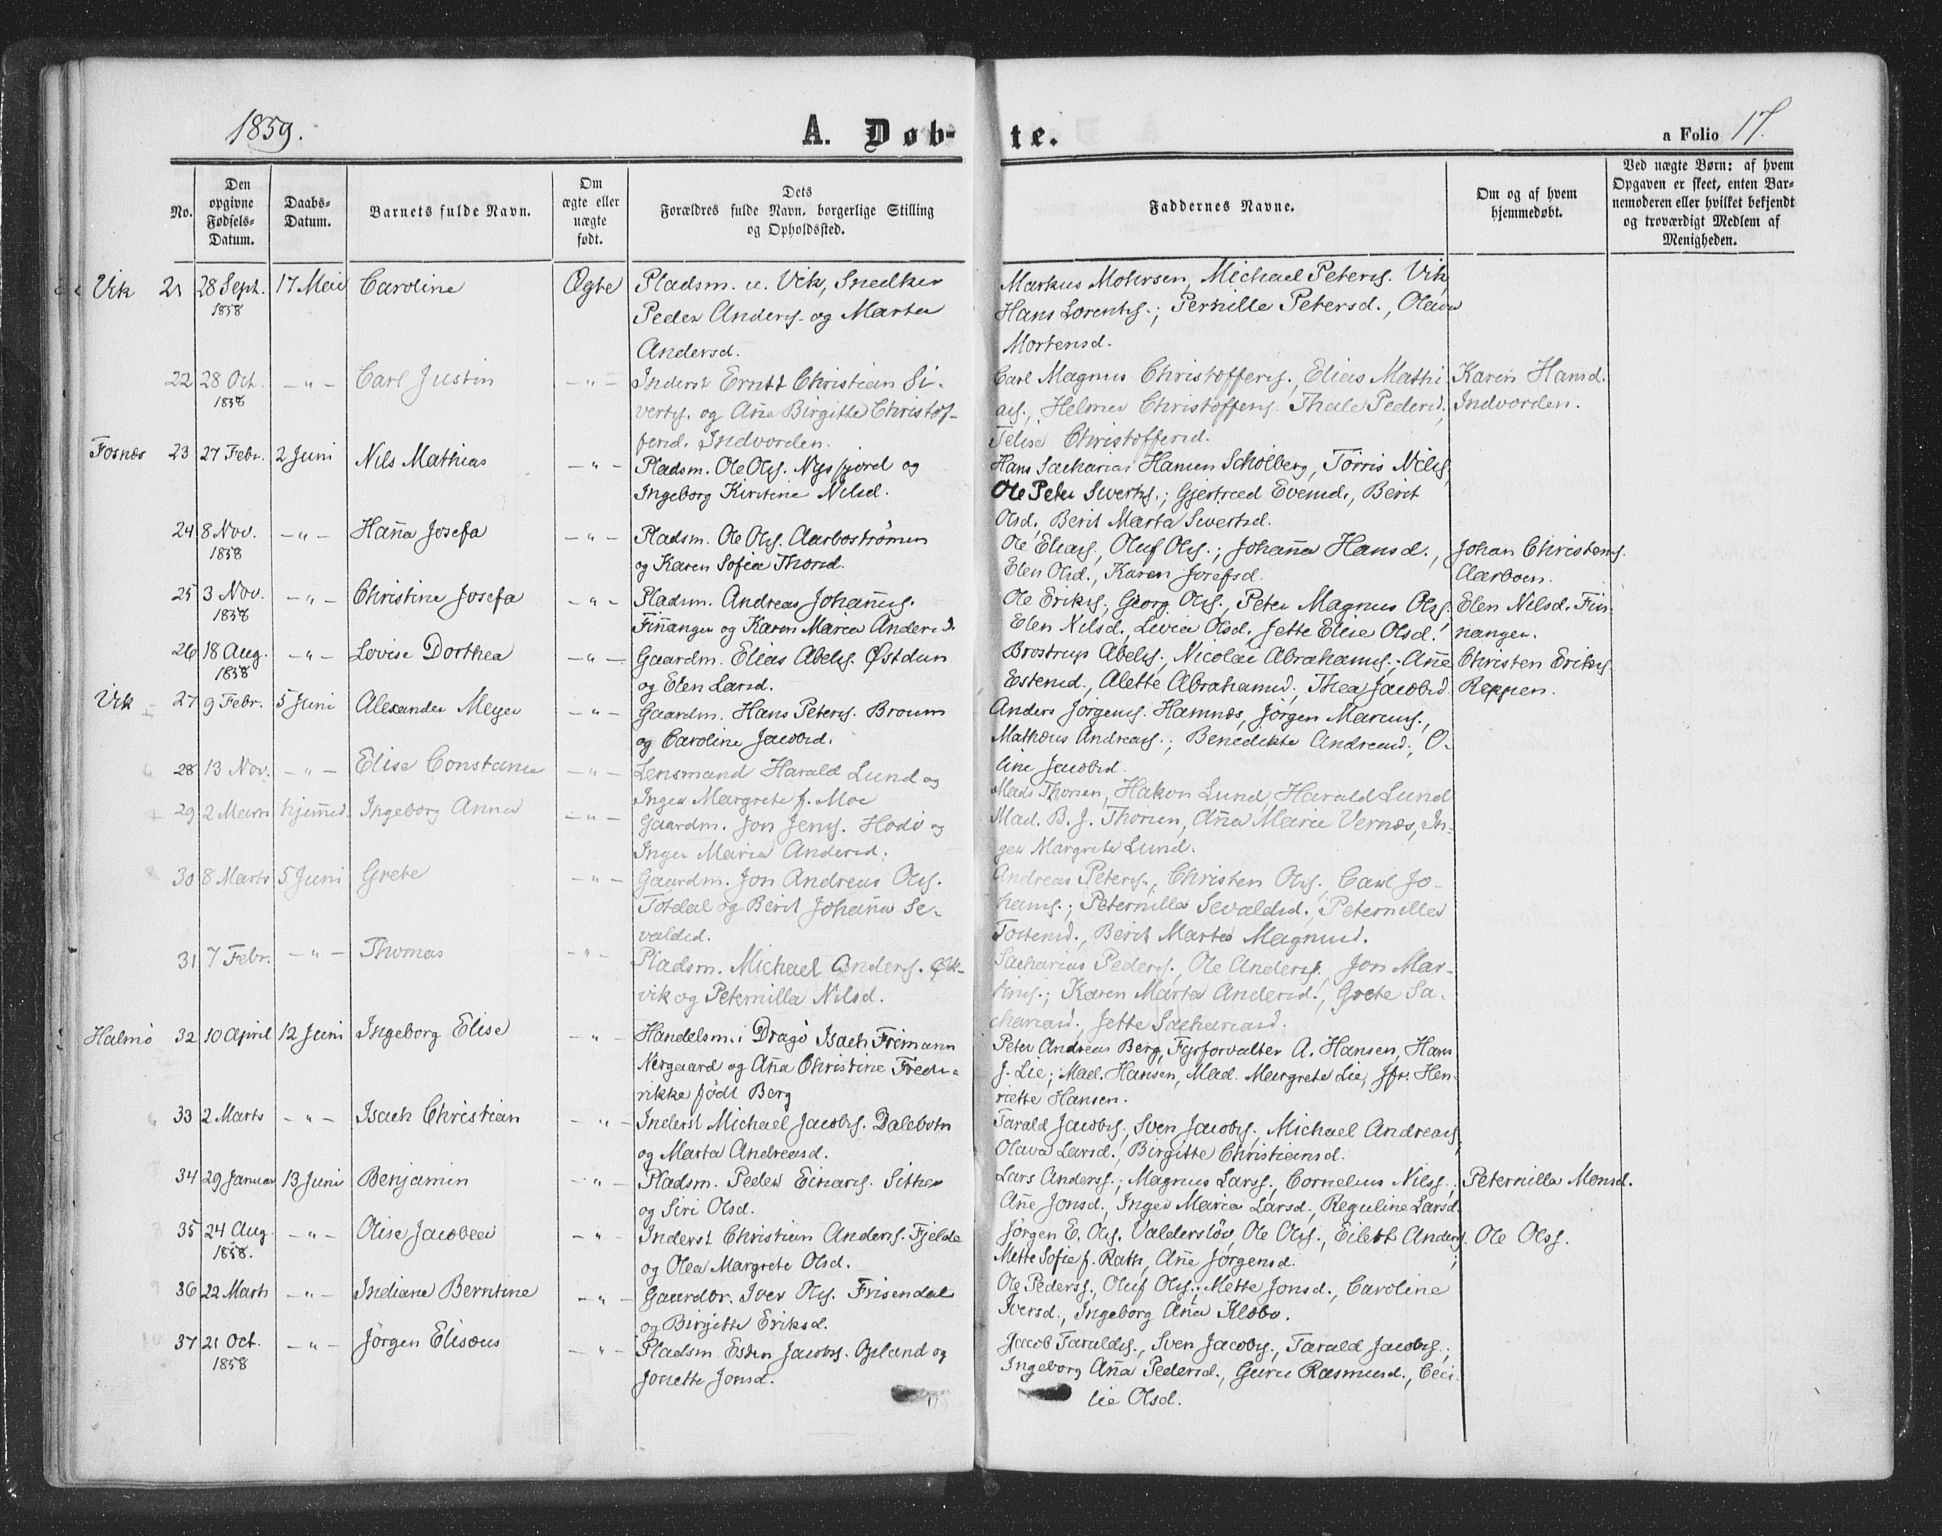 1859.
A. Døb-
te.
a Folio 17.
No.
Den opgivne Fødsels-Datum.
Daabs-Datum.
Barnets fulde Navn.
Om ægte eller uægte født.
Dets Forældres fulde Navn, borgerlige Stilling og Opholdssted.
Faddernes Navne.
Om og af hvem hjemmedøbt.
Ved uægte Børn: af hvem Opgaven er skeet, enten Barnemoderen eller hvilket bekjendt og troværdigt Medlem af Menigheden.
Vik 21 28 Sept. 1858 17 Mai Caroline Ægte
Pladsm. u. Vik, Snedker
Peder Anders. og Marta
Andersd.
Michael Peters. Vik
Hans Lorents.; Pernille Petersd., Olava
Mortensd.
22 28 Oct. 1858 -"- Carl Justin -"-
Inderst Erntt Christian Si-
verts. og Ane Birgitte Christof-
fersd. Indvorden.
Carl Magnus Christoffers., Elias Mathi-
as., Helmer Christoffers. Thale Pedersd.
Christoffersd.
Karen Hansd.
Indvorden.
Fosnæs 23 27 Febr. 2 Juni Nils Mathias -"-
Pladsm. Ole Ols. Nysfjord og
Ingeborg Kirstine Nilsd.
Hans Sacharias Hansen Scholberg, Torris Nils.
Ole Peter Siverts.; Gjertrud Evensd., Berit
Olsd., Berit Marta Sivertsd.
24 8 Nov. 1858 -"- Hanna Josefa -"-
Pladsm. Ole Ols. Aarbostrømen
og Karen Sofia Thorsd.
Ole Elias., Oluf Ols.; Johanna Hansd.,
Elen Olsd., Karen Josefsd.
Johan Christens.
Aarboen.
25 3 Nov. 1858 -"- Christine Josefa -"-
Pladsm. Andreas Johannes.
Finnanger og Karen Maria Andersd.
Ole Eriks., Georg Ols., Peter Magnus Ols.
Elen Nilsd., Livia Olsd. Jette Elise Olsd.
Elen Nilsd. Fin-
nanger.
26 18 Aug. 1858 -"- Lovise Dorthea -"-
Gaardm. Elias Abels. Østdun
og Elen Larsd.
Brostrup Abels., Nicolai Abrahams., Ane
Estensd., Alette Abrahamsd., Thea Jacobsd.
Christen Eriks.
Reppen.
Vik 27 9 Febr. 5 Juni Alexander Meyer -"-
Gaardm. Hans Peters. Broum
og Caroline Jacobsd.
Anders Jørgens. Hamnæs, Jørgen Marcus.,
Mathæus Andreas.; Benedikte Andreasd., O-
line Jacobsd.
28 13 Nov. -"- Elise Constance -"-
Lensmand Harald Lund og
Inger Margrete f. Moe
Mads Thorsen, Hakon Lund, Harald Lund
Mad. B. J. Thorsen, Anna Marie Vernæs, In-
ger Margrete Lund.
29 2 Marts hjemmed. Ingeborg Anna -"-
Gaardm. Jon Jens. Hodø og
Inger Maria Andersd.
30 8 Marts 5 Juni Grete -"-
Gaardm. Jon Andreas Ols.
Totdal og Berit Johanna Se-
valdsd.
Andreas Peters., Christen Ols., Carl Jo-
hans.; Peternilla Sevaldsd., Peternilla
Tostensd., Berit Marta Magnusd.
31 7 Febr. -"- Thomas -"-
Pladsm. Michael Anders. Øk-
vik og Peternilla Nilsd.
Sacharias Peders., Ole Anders., Jon Mar-
tins.; Karen Marta Andersd., Grete Sa-
chariasd., Jette Sachariasd.
Halmø 32 10 April 12 Juni Ingeborg Elise -"-
Handelsm. i Dragø Isach Frimann
Nergaard og Ana Christine Frede-
rikke født Berg
Peter Andreas Berg, Fyrforvalter A. Hansen, Hans
J. Lie; Mad. Hansen, Mad. Margrete Lie, Jfr. Hen-
riette Hansen.
33 2 Marts -"- Isach Christian -"-
Inderst Michael Jacobs. Dalebotn
og Marta Andreasd.
Tarald Jacobs., Sven Jacobs., Michael Andreas.,
Olava Larsd., Birgitte Christiansd.
34 29 Januar 13 Juni Benjamin -"-
Pladsm. Peder Einars. Sitter
og Siri Olsd.
Lars Anders.; Magnus Larss., Cornelius Nilss.;
Ane Jonsd., Inger Maria Larsd., Reguline Larsd.
Peternilla Monsd.
35 24 Aug. 1858. -"- Olise Jacobea -"-
Inderst Christian Anders. Fjelde
og Olea Margrete Olsd.
Jørgen E. Ols. Valdersløv, Ole Ols., Eilett Anders.;
Mette Sofie f. Rath, Ane Jørgensd.
Ole Olss.
36 22 Marts -"- Indiane Berntine -"-
Gaardbr. Iver Ols. Frisendal
og Birgitte Eriksd.
Ole Peders., Oluf Ols.; Mette Jonsd., Caroline
Iversd., Ingeborg Ana Klobo.
37 21 Oct. 1858 -"- Jørgen Elisæus -"-
Pladsm. Esten Jacobs. Opland og
Jonette Jonsd.
Jacob Taralds., Sven Jacobs., Tarald Jacobs.;
Ingeborg Ana Pedersd., Guru Rasmusd., Ceci-
lie Olsd.